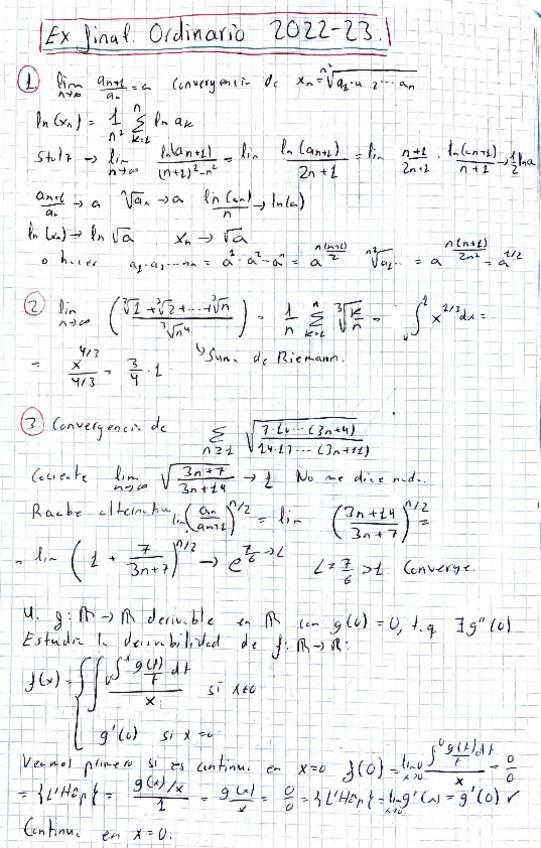 Ex final. Ordinario 2022-23.
① lim n→∞ an+1/an = a Convergencia de xn = n²√(a1·a2···an)
ln(xn) = 1/n² Σ k=1 n ln ak
Stolz → lim n→∞ ln(an+1)/((n+1)²-n²) = lim ln(an+1)/(2n+1) = lim (n+1)/(2n+1) · ln(an+1)/(n+1) → 1/2 ln a
an+1/an → a n√an → a ln(an)/n → ln(a)
ln(xn) → ln √a xn → √a
o hacer a1·a2···an = a¹·a²···aⁿ = a^(n(n+1)/2) n²√a1·· = a^(n(n+1)/2n²) = a^(1/2)
② lim n→∞ ( (³√1 + ³√2 + ··· + ³√n) / ³√n⁴ ) = 1/n Σ k=1 n ³√(k/n) = ∫ x^(1/3) dx =
= x^(4/3)/(4/3) = 3/4 · 1 ↳ Suma de Riemann.
③ Convergencia de Σ n≥1 √( 7·10···(3n+4) / 14·17···(3n+11) )
Cociente lim n→∞ √( (3n+7)/(3n+14) ) → 1 No me dice nada.
Raabe alternativa lim (an/an+1)^n = lim ( (3n+14)/(3n+7) )^(n/2) =
= lim ( 1 + 7/(3n+7) )^(n/2) → e^(7/6) → L L = 7/6 > 1 Converge.
4. g: ℝ → ℝ derivable en ℝ con g(0) = 0, t.q ∃ g''(0)
Estudia la derivabilidad de f: ℝ → ℝ:
f(x) = { ∫0 x g(t)/t dt / x si x≠0
g'(0) si x = 0
Veamos primero si es continua en x=0 f(0) = lim x→0 ∫0 g(t)/t dt / x = 0/0
= {L'Hôp} = (g(x)/x)/1 = g(x)/x = 0/0 = {L'Hôp} = lim x→0 g'(x) = g'(0) ✓
Continua en x=0.